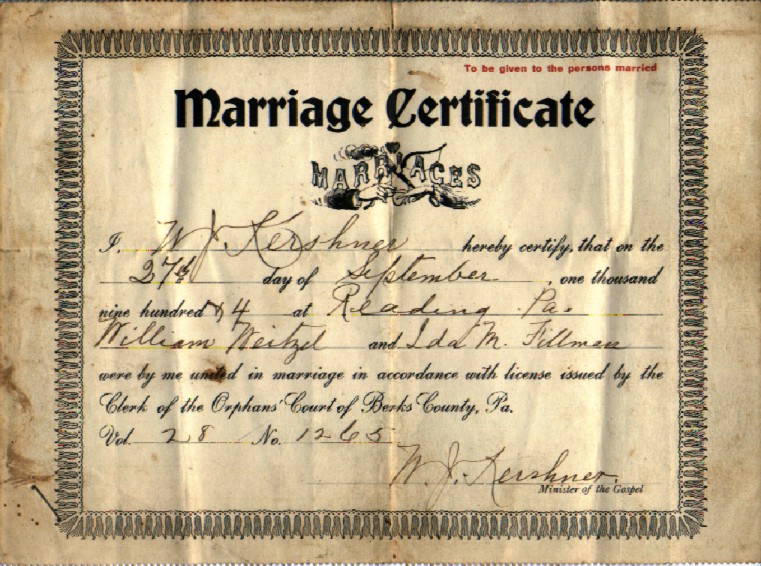 To be given to the persons married
Marriage Certificate
MARRIAGES
I, W. J. Kershner hereby certify, that on the
27th day of September, one thousand
nine hundred & 4 at Reading Pa.
William Weitzel and Ida M. Fillman
were by me united in marriage in accordance with license issued by the
Clerk of the Orphans' Court of Berks County, Pa.
Vol. 28 No. 1265
W. J. Kershner.
Minister of the Gospel